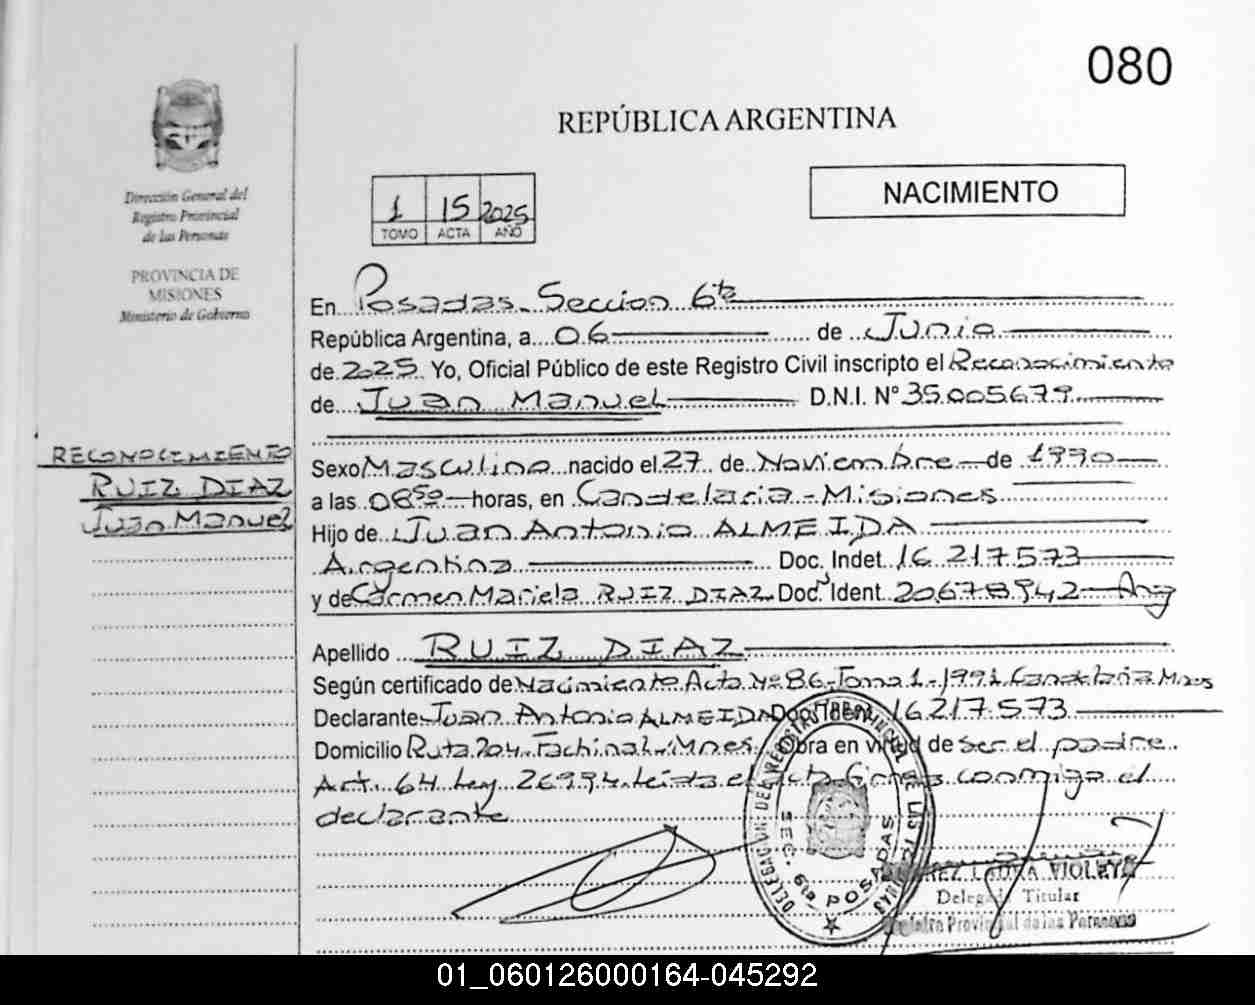 080
REPÚBLICA ARGENTINA
NACIMIENTO
1 15 2025
TOMO ACTA AÑO
Dirección General del
Registro Provincial
de las Personas
PROVINCIA DE
MISIONES
Ministerio de Gobierno
En Posadas Seccion 6ta
República Argentina, a 06 de Junio
de 2025 Yo, Oficial Público de este Registro Civil inscripto el Reconocimiento
de Juan Manuel D.N.I. N° 35.005.679
RECONOCIMIENTO
RUIZ DIAZ
Juan Manuel
Sexo Masculino nacido el 27 de Noviembre de 1990
a las 08 50 horas, en Candelaria - Misiones
Hijo de Juan Antonio ALMEIDA
Argentina Doc. Indet. 16.217.573
y de Carmen Mariela RUIZ DIAZ Doc. Ident. 20.678.942 Arg
Apellido RUIZ DIAZ
Según certificado de Nacimiento Acta Nº 86 - Tomo 1 - 1991 Candelaria Mnes
Declarante Juan Antonio ALMEIDA Doc. Ident. 16.217.573
Domicilio Ruta 204 Fachinal - Mnes Obra en virtud de ser el padre
Art. 64 Ley 26994 Leida el acta Firma conmigo el
declarante
DELEGACION DEL REGISTRO PROVINCIAL DE LAS PERSONAS
SEC. 6ta POSADAS
LAURA VIOLETA
Delegada Titular
Registro Provincial de las Personas
01_060126000164-045292